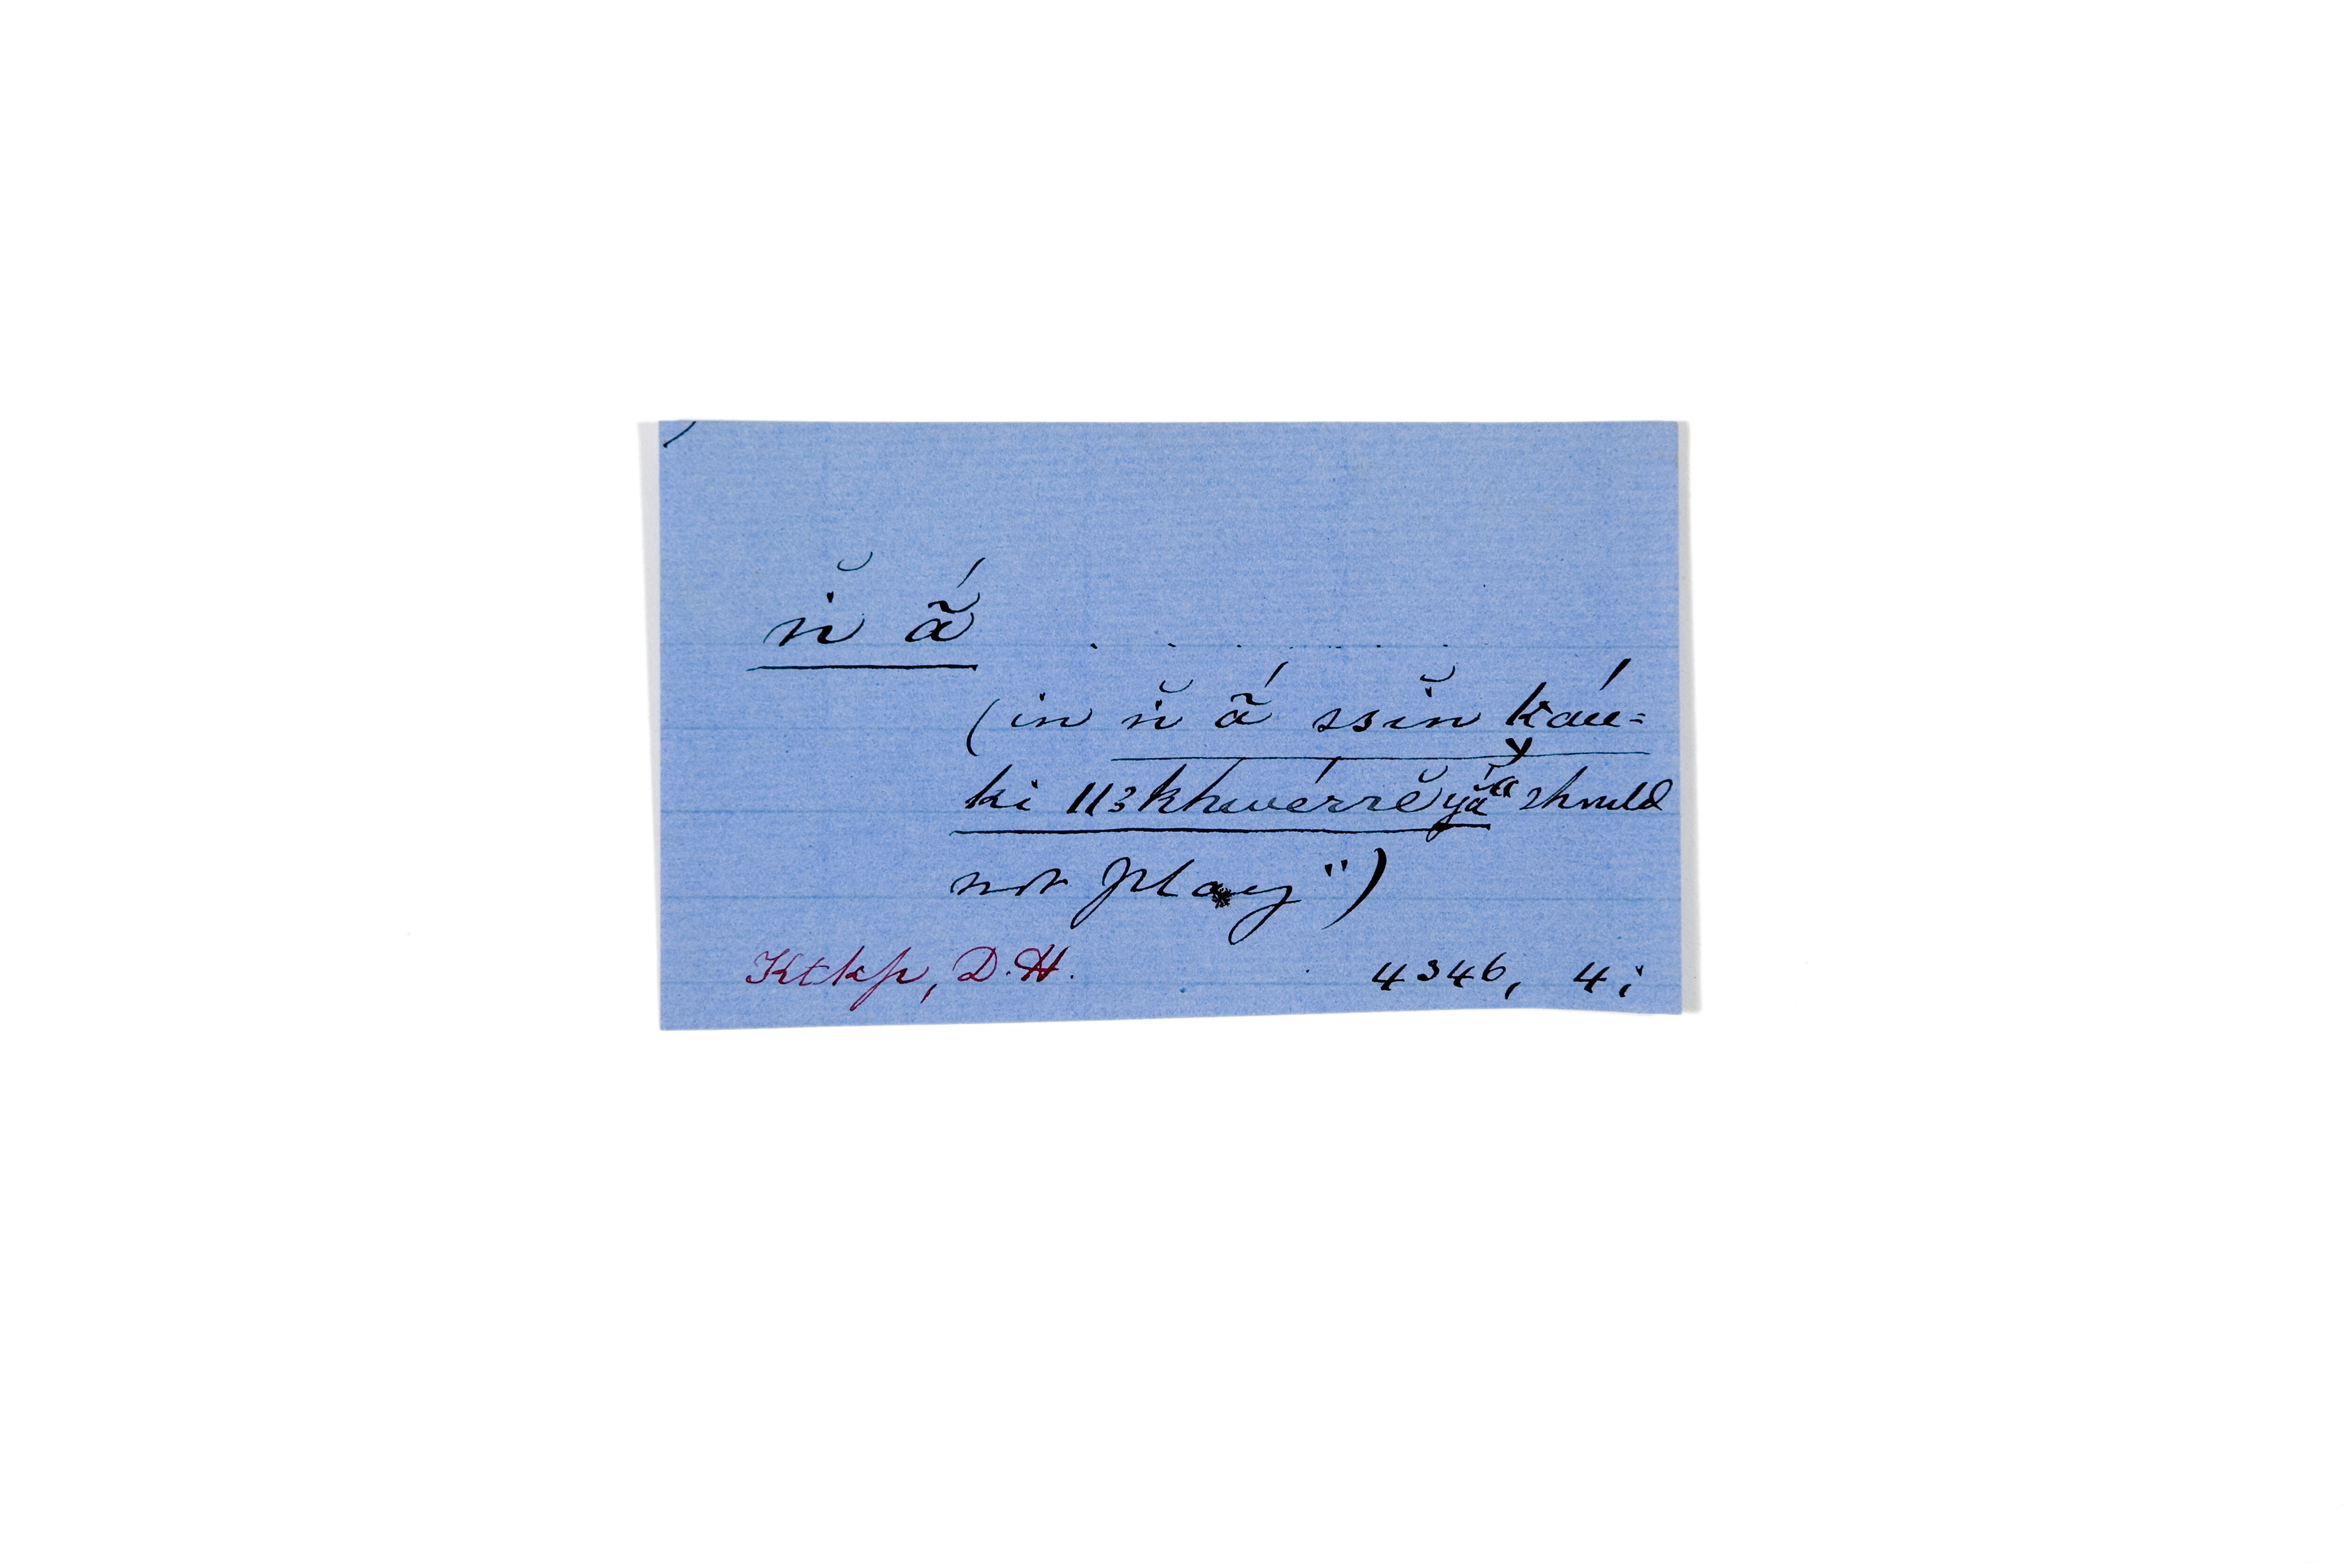 ṅ̆ ã́ . . . . . . . .
(in ṅ̆ ã́ ssĭn káu=
ki ||3khwérrĕyá “should
not play")
Ktkp, D.H. 4346, 4;